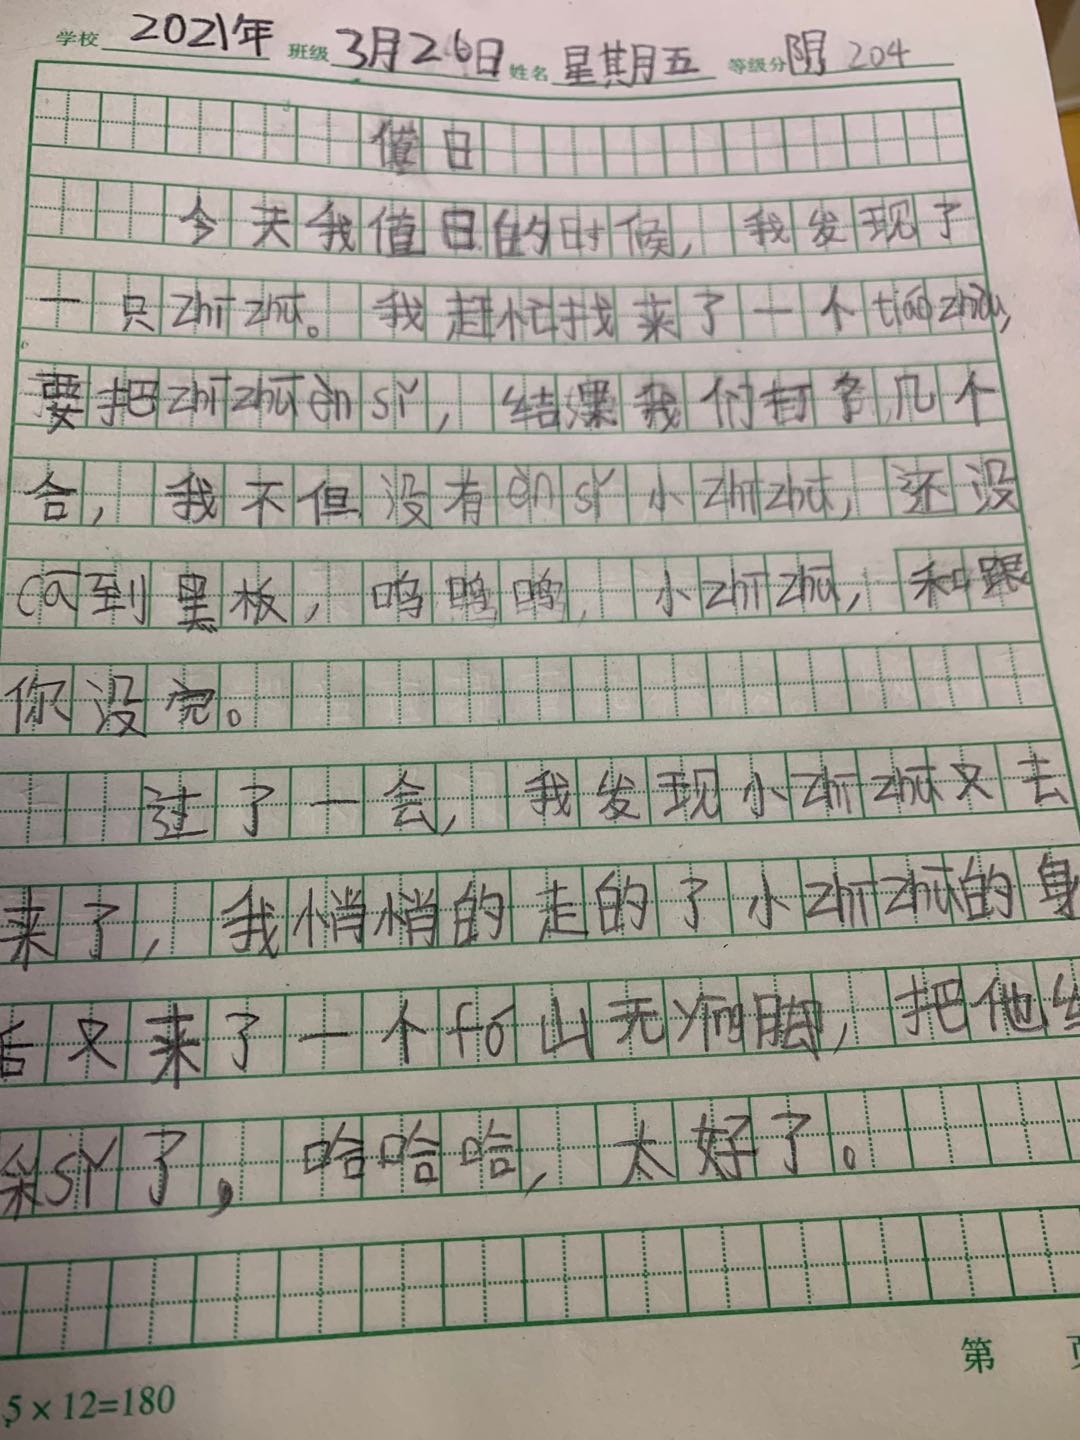 学校 2021年 班级 3月26日 姓名 星其月五 等级分 阴 204
值日
今天我值日的时候，我发现了
一只zhī zhū。我赶忙找来了一个tiáo zhǒu，
要把zhī zhū èn sǐ，结果我们打了几个
合，我不但没有èn sǐ小zhī zhū，还没
cā到黑板，呜呜呜，小zhī zhū，和跟
你没完。
过了一会，我发现小zhī zhū又去
来了，我悄悄的走的了小zhī zhū的身
后又来了一个fó山无yǐng脚，把他给
采sǐ了，哈哈哈，太好了。
第 页
5×12=180